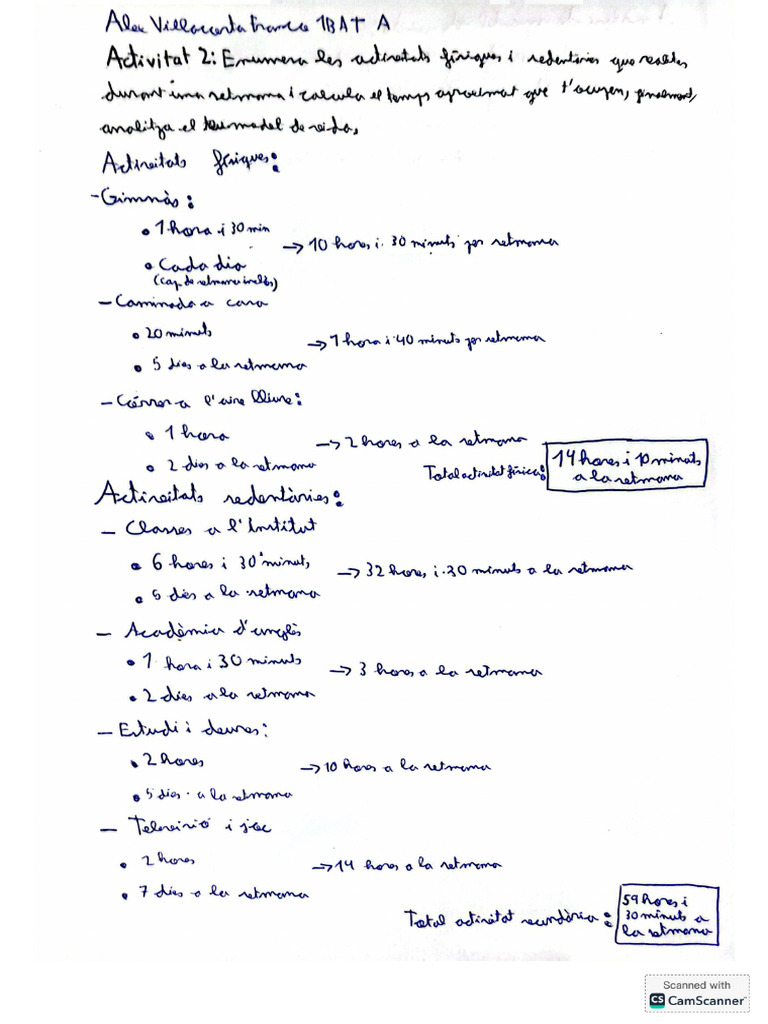 Alex Villacorta Franco 1BAT A
Activitat 2: Enumera les activitats físiques i sedentàries que realitzes
durant una setmana i calcula el temps aproximat que t'ocupen, finalment,
analitza el teu model de vida.
Activitats físiques:
- Gimnàs:
• 1 hora i 30 min
→ 10 hores i 30 minuts per setmana
• Cada dia
(Cap de setmana inclòs)
- Caminada a casa
• 20 minuts
→ 1 hora i 40 minuts per setmana
• 5 dies a la setmana
- Córrer a l'aire lliure:
• 1 hora
→ 2 hores a la setmana
• 2 dies a la setmana
Total activitat física: 14 hores i 10 minuts
a la setmana
Activitats sedentàries:
- Classes a l'Institut
• 6 hores i 30 minuts
→ 32 hores i 30 minuts a la setmana
• 5 dies a la setmana
- Acadèmia d'anglès
• 1 hora i 30 minuts
→ 3 hores a la setmana
• 2 dies a la setmana
- Estudi i deures:
• 2 hores
→ 10 hores a la setmana
• 5 dies a la setmana
- Televisió i joc
• 2 hores
→ 14 hores a la setmana
• 7 dies a la setmana
Total activitat secundària:
59 hores i
30 minuts a
la setmana
Scanned with
CS CamScanner